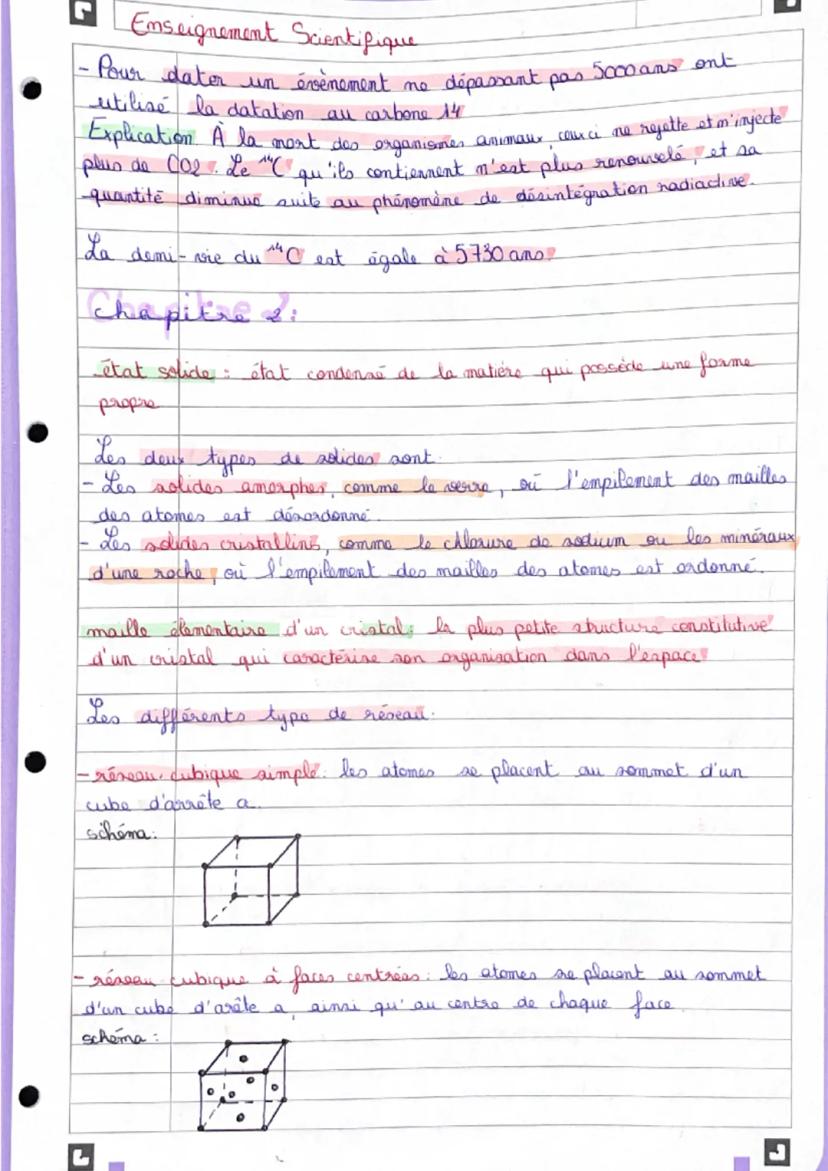 Enseignement Scientifique
- Pour dater un évènement ne dépassant pas 5000 ans ont
utilisé la datation au carbone 14
Explication À la mort des organismes animaux, ceux ci ne rejette et n'injecte
plus de CO2. Le ¹⁴C qu'ils contiennent n'est plus renouvelé, et sa
quantité diminue suite au phénomène de désintégration radiactive.
La demi-vie du ¹⁴C est égale à 5730 ans.
Chapitre 2:
état solide : état condensé de la matière qui possède une forme
propre
Les deux types de solides sont.
- Les solides amorphes, comme le verre, où l'empilement des mailles
des atomes est désordonné.
- Les solides cristallins, comme le chlorure de sodium ou les minéraux
d'une roche, où l'empilement des mailles des atomes est ordonné.
maille élémentaire d'un cristal: la plus petite structure constitutive
d'un cristal qui caractérise son organisation dans l'espace
Les différents type de réseau.
- réseau cubique simple: les atomes se placent au sommet d'un
cube d'arrête a.
schéma:
- réseau cubique à faces centrées: les atomes se placent au sommet
d'un cube d'arête a, ainsi qu'au centre de chaque face
schéma :